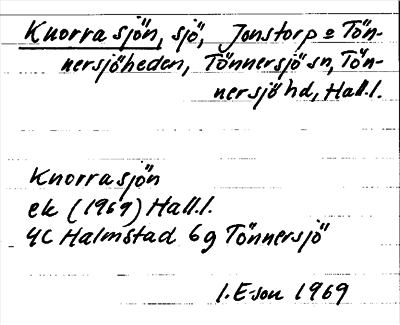 Knorrasjön, sjö, Jonstorp o Tön-
nersjöheden, Tönnersjö sn, Tön-
nersjö hd, Hall.l.
Knorrasjön
ek (1969) Hall.l.
4C Halmstad 6g Tönnersjö
I.E-son 1969